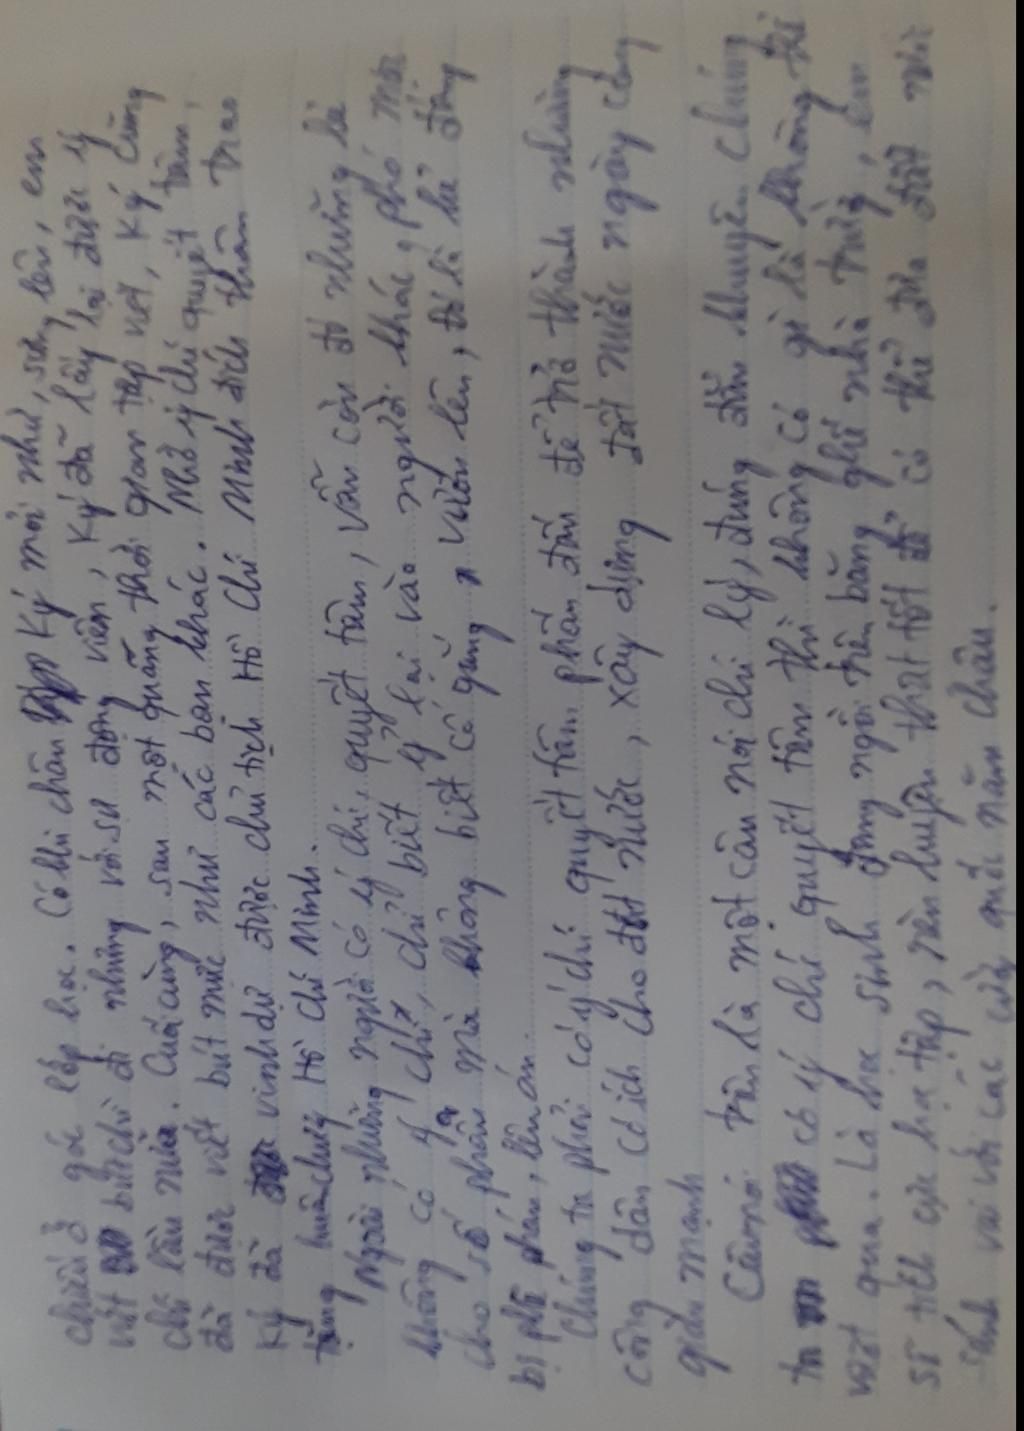 chiếu ở góc lớp học. Có khi chân Ký mỏi nhừ, sưng lên, em
vứt bút chì đi nhưng với sự động viên, Ký đã lấy lại được ý
chí lần nữa. Cuối cùng, sau một quãng thời gian tập viết, Ký cũng
đã được viết bút mực như các bạn khác. Nhờ ý chí quyết tâm,
Ký đã vinh dự được chủ tịch Hồ Chí Minh đích thân trao
tặng huân chương Hồ Chí Minh.
Ngoài những người có ý chí, quyết tâm, vẫn còn đó những kẻ
không có ý chí, chỉ biết ỷ lại vào người khác, phó mặc
cho số phận mà không biết cố gắng vươn lên, đó là kẻ đáng
bị phê phán, lên án.
Chúng ta phải có ý chí quyết tâm phấn đấu để trở thành những
công dân có ích cho đất nước, xây dựng đất nước ngày càng
giàu mạnh
Câu nói trên là một câu nói chí lý, đúng đắn khuyên chúng
ta có ý chí quyết tâm thì không có gì là không thể
vượt qua. Là học sinh đang ngồi trên băng ghế nhà trường, em
sẽ tích cực học tập, rèn luyện thật tốt để có thể đưa đất nước
sánh vai với các cường quốc năm châu.